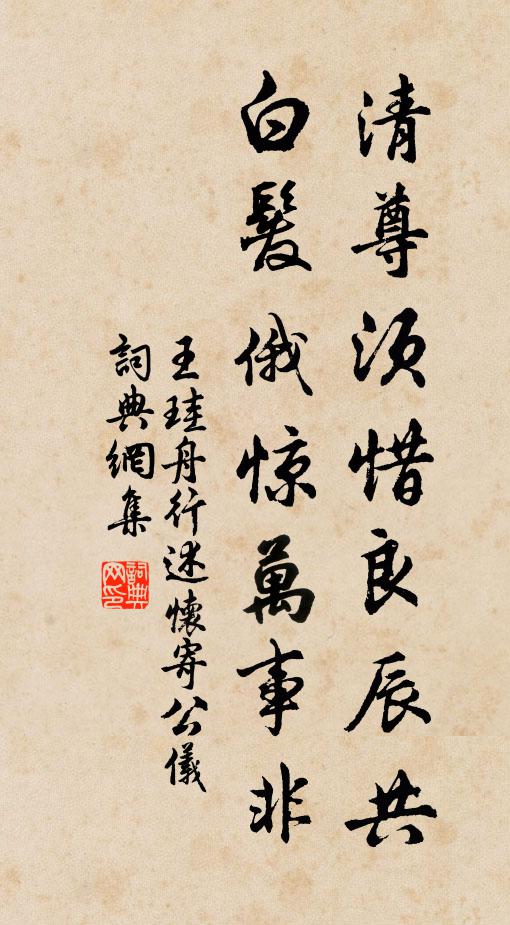 清尊須惜良辰共
白髮俄惊萬事非
王珪舟行述懷寄公儀
詞典網集
詞典
网印